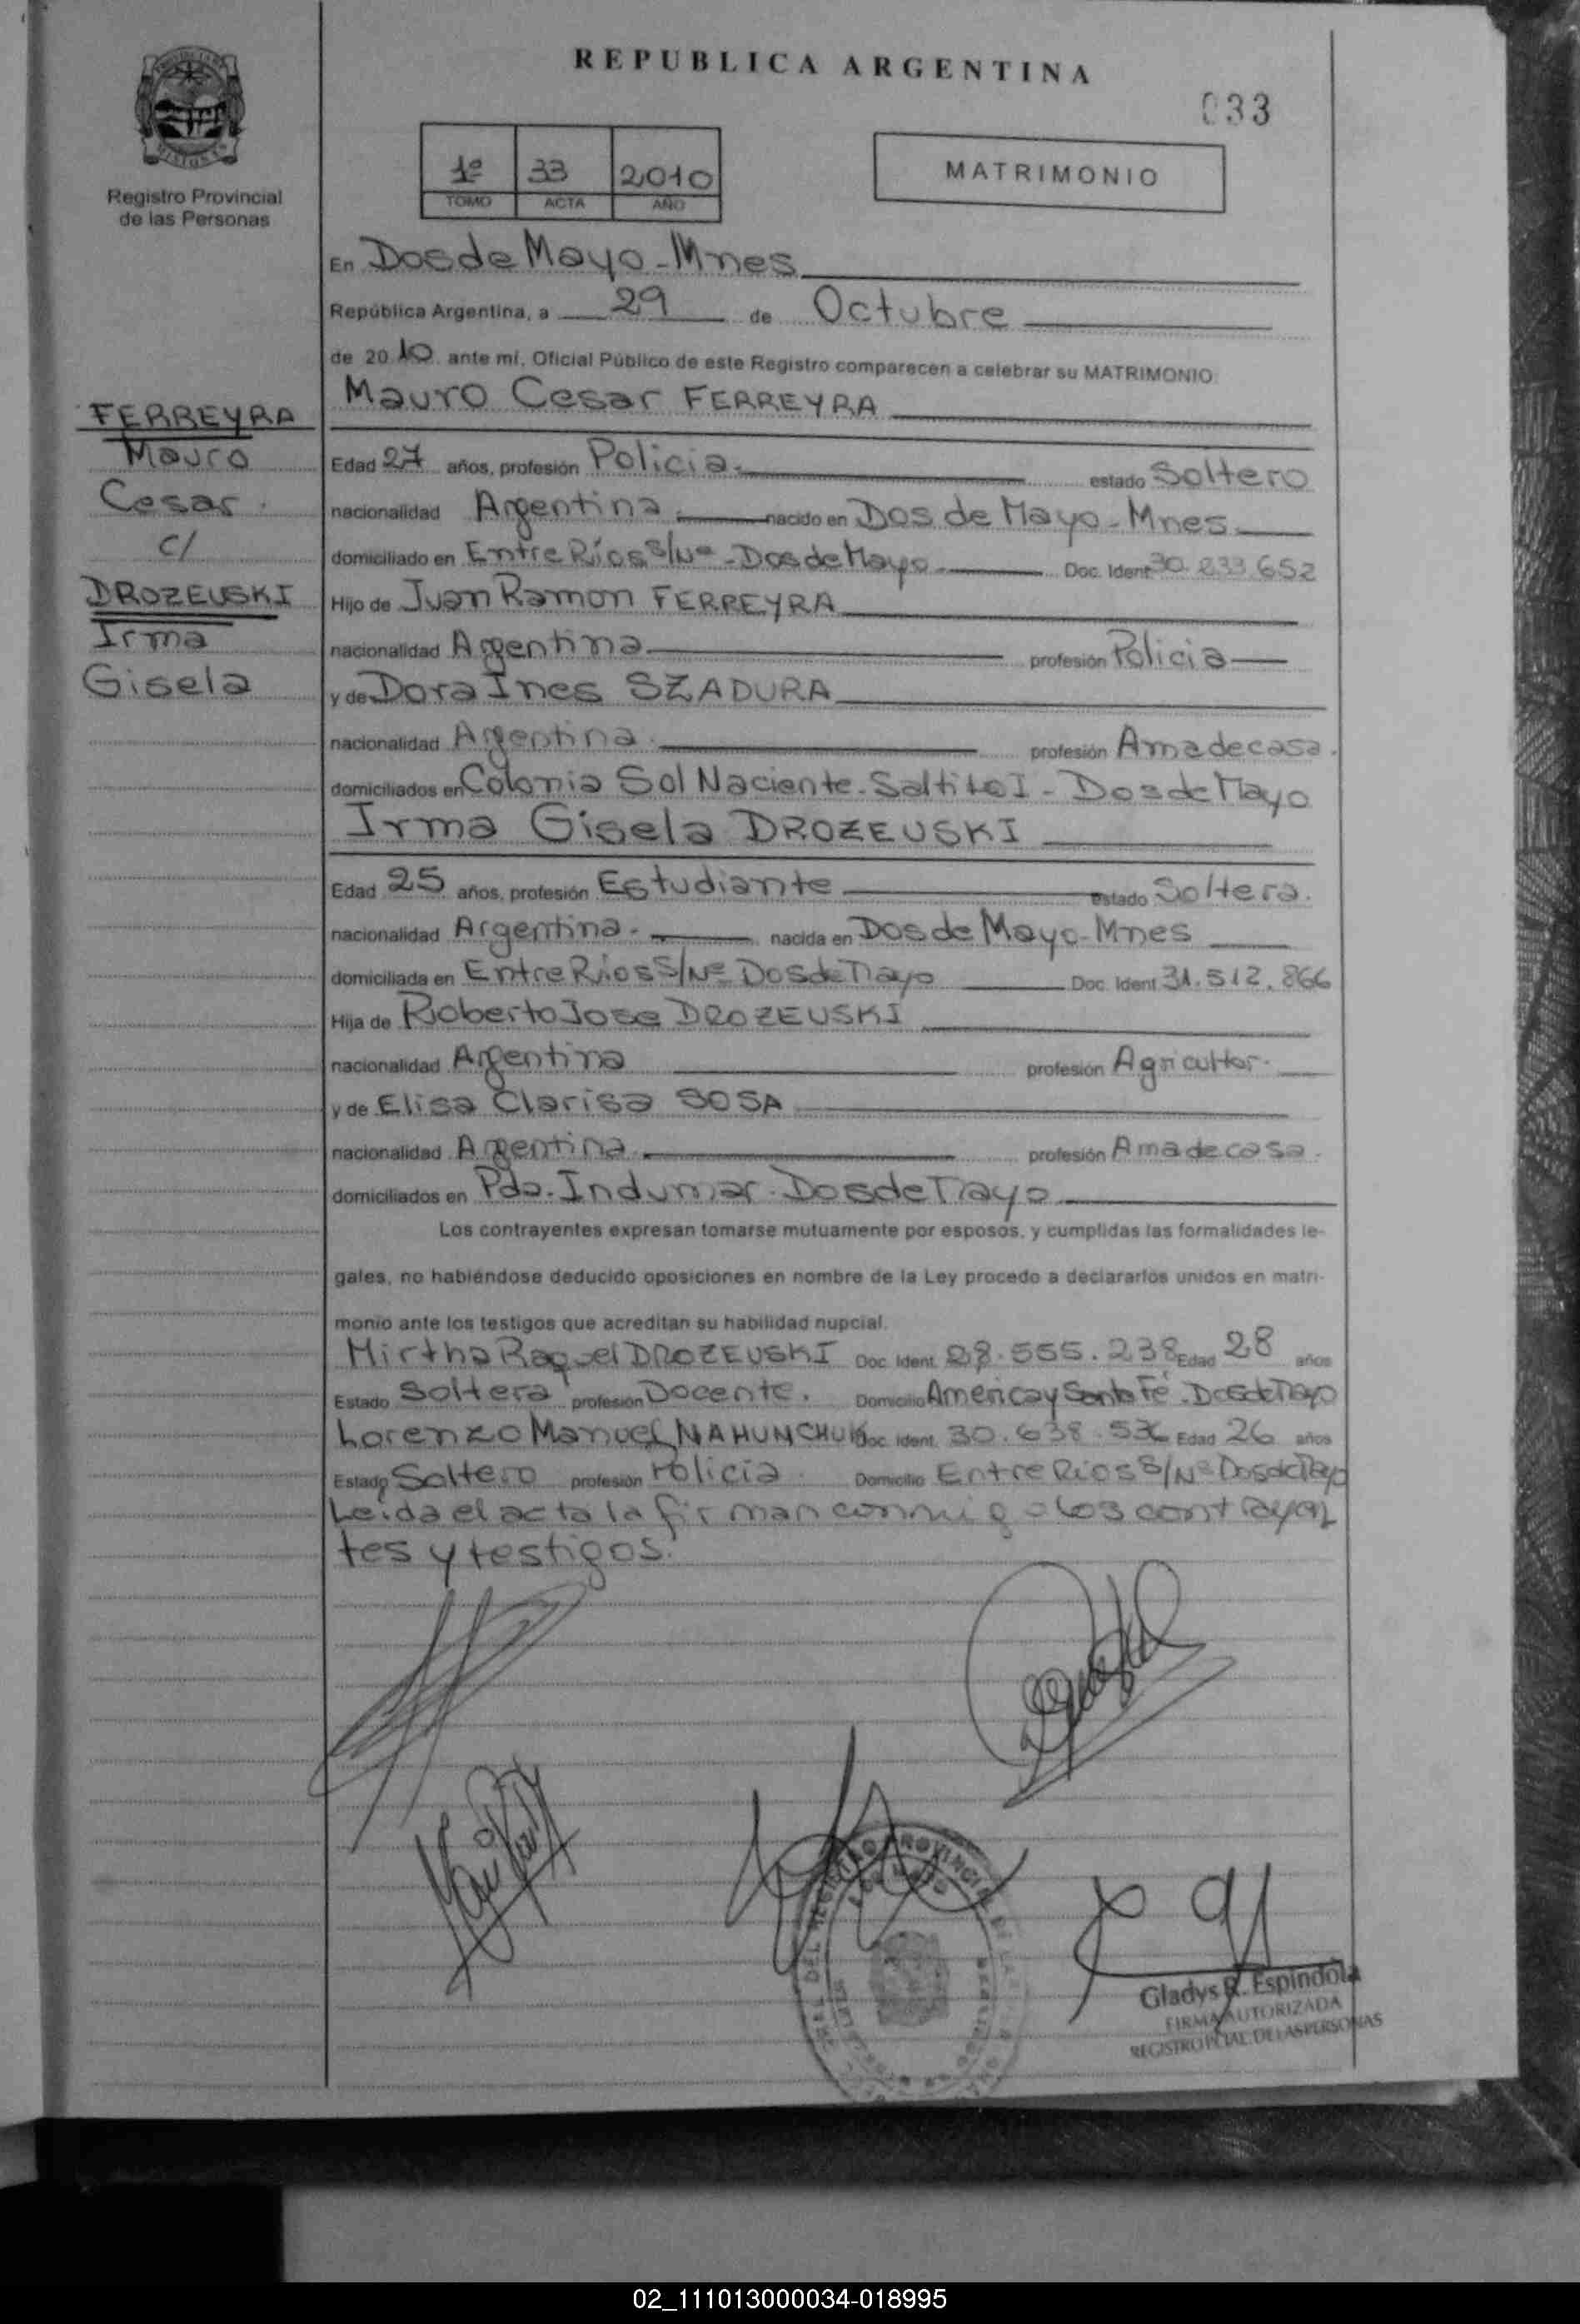 REPUBLICA ARGENTINA
033
Registro Provincial
de las Personas
1º 33 2010
TOMO ACTA AÑO
MATRIMONIO
FERREYRA
Mauro
Cesar
c/
DROZEUSKI
Irma
Gisela
En Dos de Mayo - Mnes
República Argentina, a 29 de Octubre
de 2010 ante mí, Oficial Público de este Registro comparecen a celebrar su MATRIMONIO
Mauro Cesar FERREYRA
Edad 27 años, profesión Policia estado Soltero
nacionalidad Argentina nacido en Dos de Mayo - Mnes
domiciliado en Entre Ríos S/Nº - Dos de Mayo Doc. Ident 30.233.652
Hijo de Juan Ramon FERREYRA
nacionalidad Argentina profesión Policia
y de Dora Ines SZADURA
nacionalidad Argentina profesión Ama de casa.
domiciliados en Colonia Sol Naciente - Saltito I - Dos de Mayo
Irma Gisela DROZEUSKI
Edad 25 años, profesión Estudiante estado Soltera.
nacionalidad Argentina. nacida en Dos de Mayo - Mnes
domiciliada en Entre Rios S/Nº Dos de Mayo Doc. Ident 31.512.866
Hija de Roberto Jose DROZEUSKI
nacionalidad Argentina profesión Agricultor.
y de Elisa Clarisa SOSA
nacionalidad Argentina profesión Ama de casa.
domiciliados en Pda. Indumar - Dos de Mayo
Los contrayentes expresan tomarse mutuamente por esposos, y cumplidas las formalidades le-
gales, no habiéndose deducido oposiciones en nombre de la Ley procedo a declararlos unidos en matri-
monio ante los testigos que acreditan su habilidad nupcial.
Mirtha Raquel DROZEUSKI Doc. Ident. 28.555.238 Edad 28 años
Estado Soltera profesión Docente. Domicilio America y Santa Fé - Dos de Mayo
Lorenzo Manuel NAHUNCHUK Doc. Ident. 30.638. Edad 26 años
Estado Soltero profesión Policia. Domicilio Entre Rios S/Nº Dos de Mayo
Leida el acta la firman conmigo los contrayen
tes y testigos.
Gladys R. Espindola
FIRMA AUTORIZADA
REGISTRO PCIAL. DE LAS PERSONAS
02_111013000034-018995